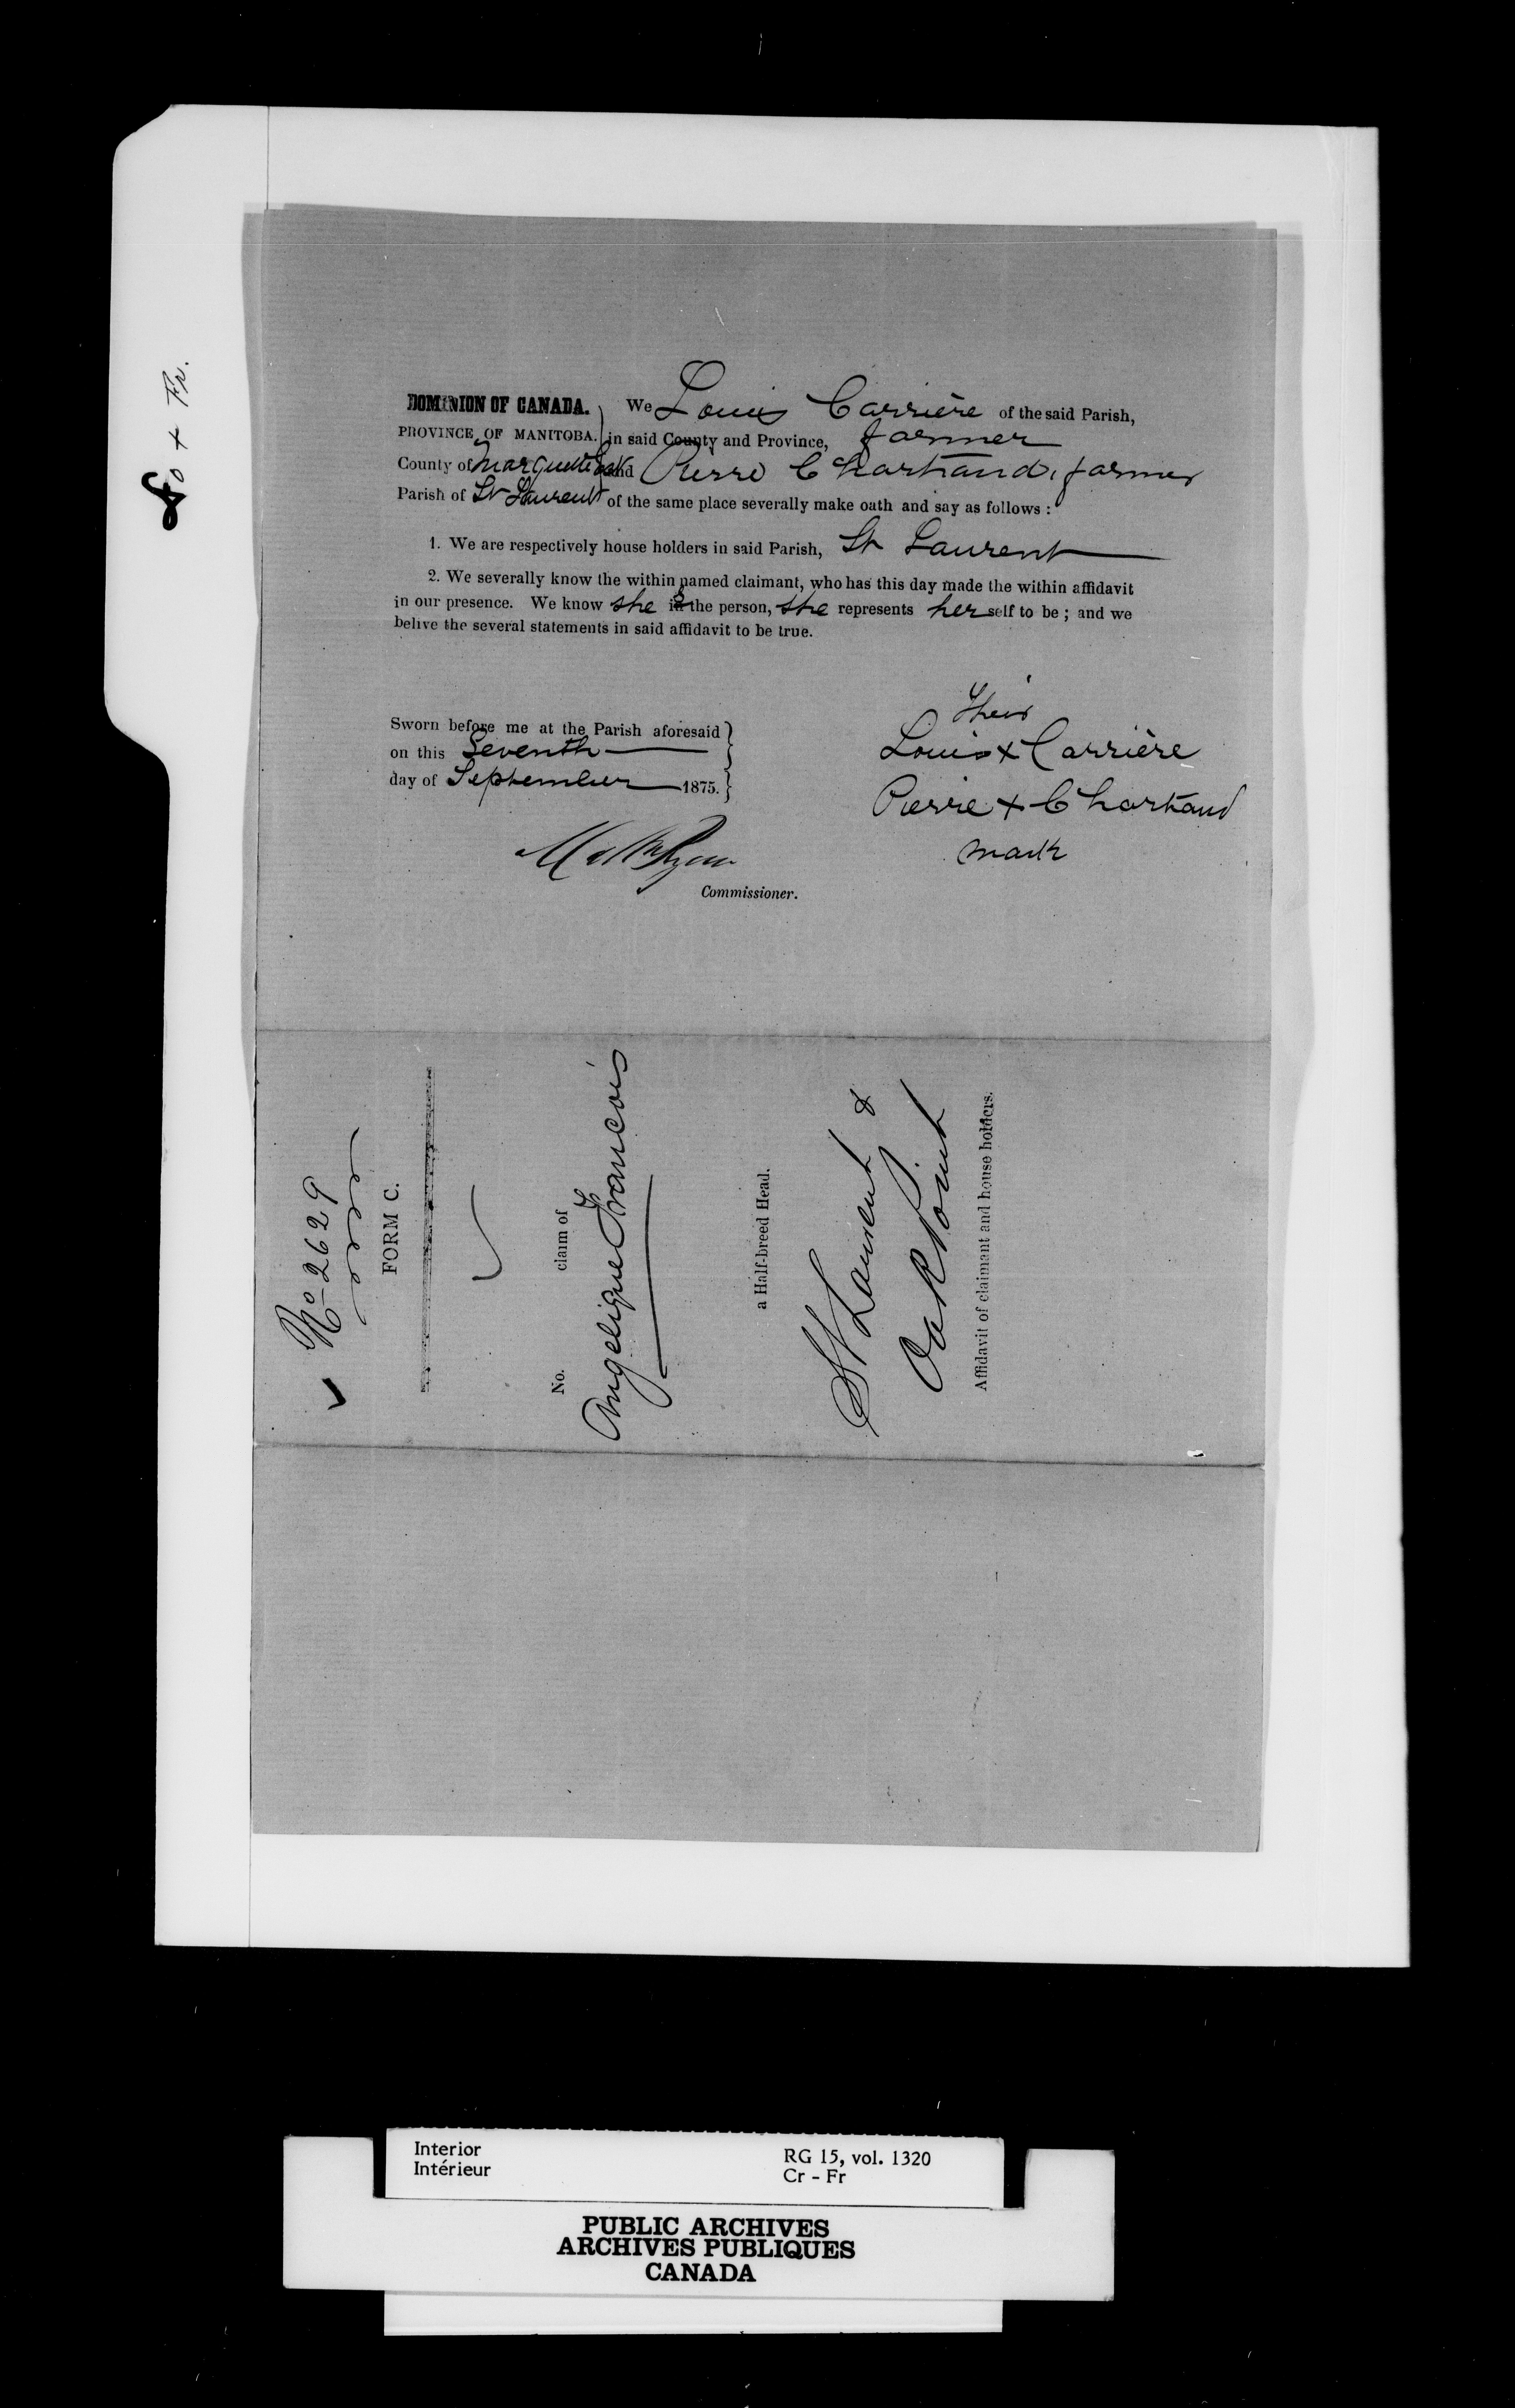 Fo + Fr.
DOMINION OF CANADA.
PROVINCE OF MANITOBA.
County of Marquette East
Parish of St Laurent
We Louis Carrière of the said Parish,
in said County and Province, farmer
and Pierre Chartrand, farmer
of the same place severally make oath and say as follows :
1. We are respectively house holders in said Parish, St Laurent
2. We severally know the within named claimant, who has this day made the within affidavit
in our presence. We know she is the person, she represents herself to be ; and we
belive the several statements in said affidavit to be true.
Sworn before me at the Parish aforesaid
on this Seventh
day of September 1875.
Commissioner.
Their
Louis x Carrière
Pierre x Chartrand
mark
No 2629
FORM C.
No. claim of
Angelique Francois
a Half-breed Head.
St Laurent &
Oak Point
Affidavit of claimant and house holders.
Interior
Intérieur
RG 15, vol. 1320
Cr - Fr
PUBLIC ARCHIVES
ARCHIVES PUBLIQUES
CANADA